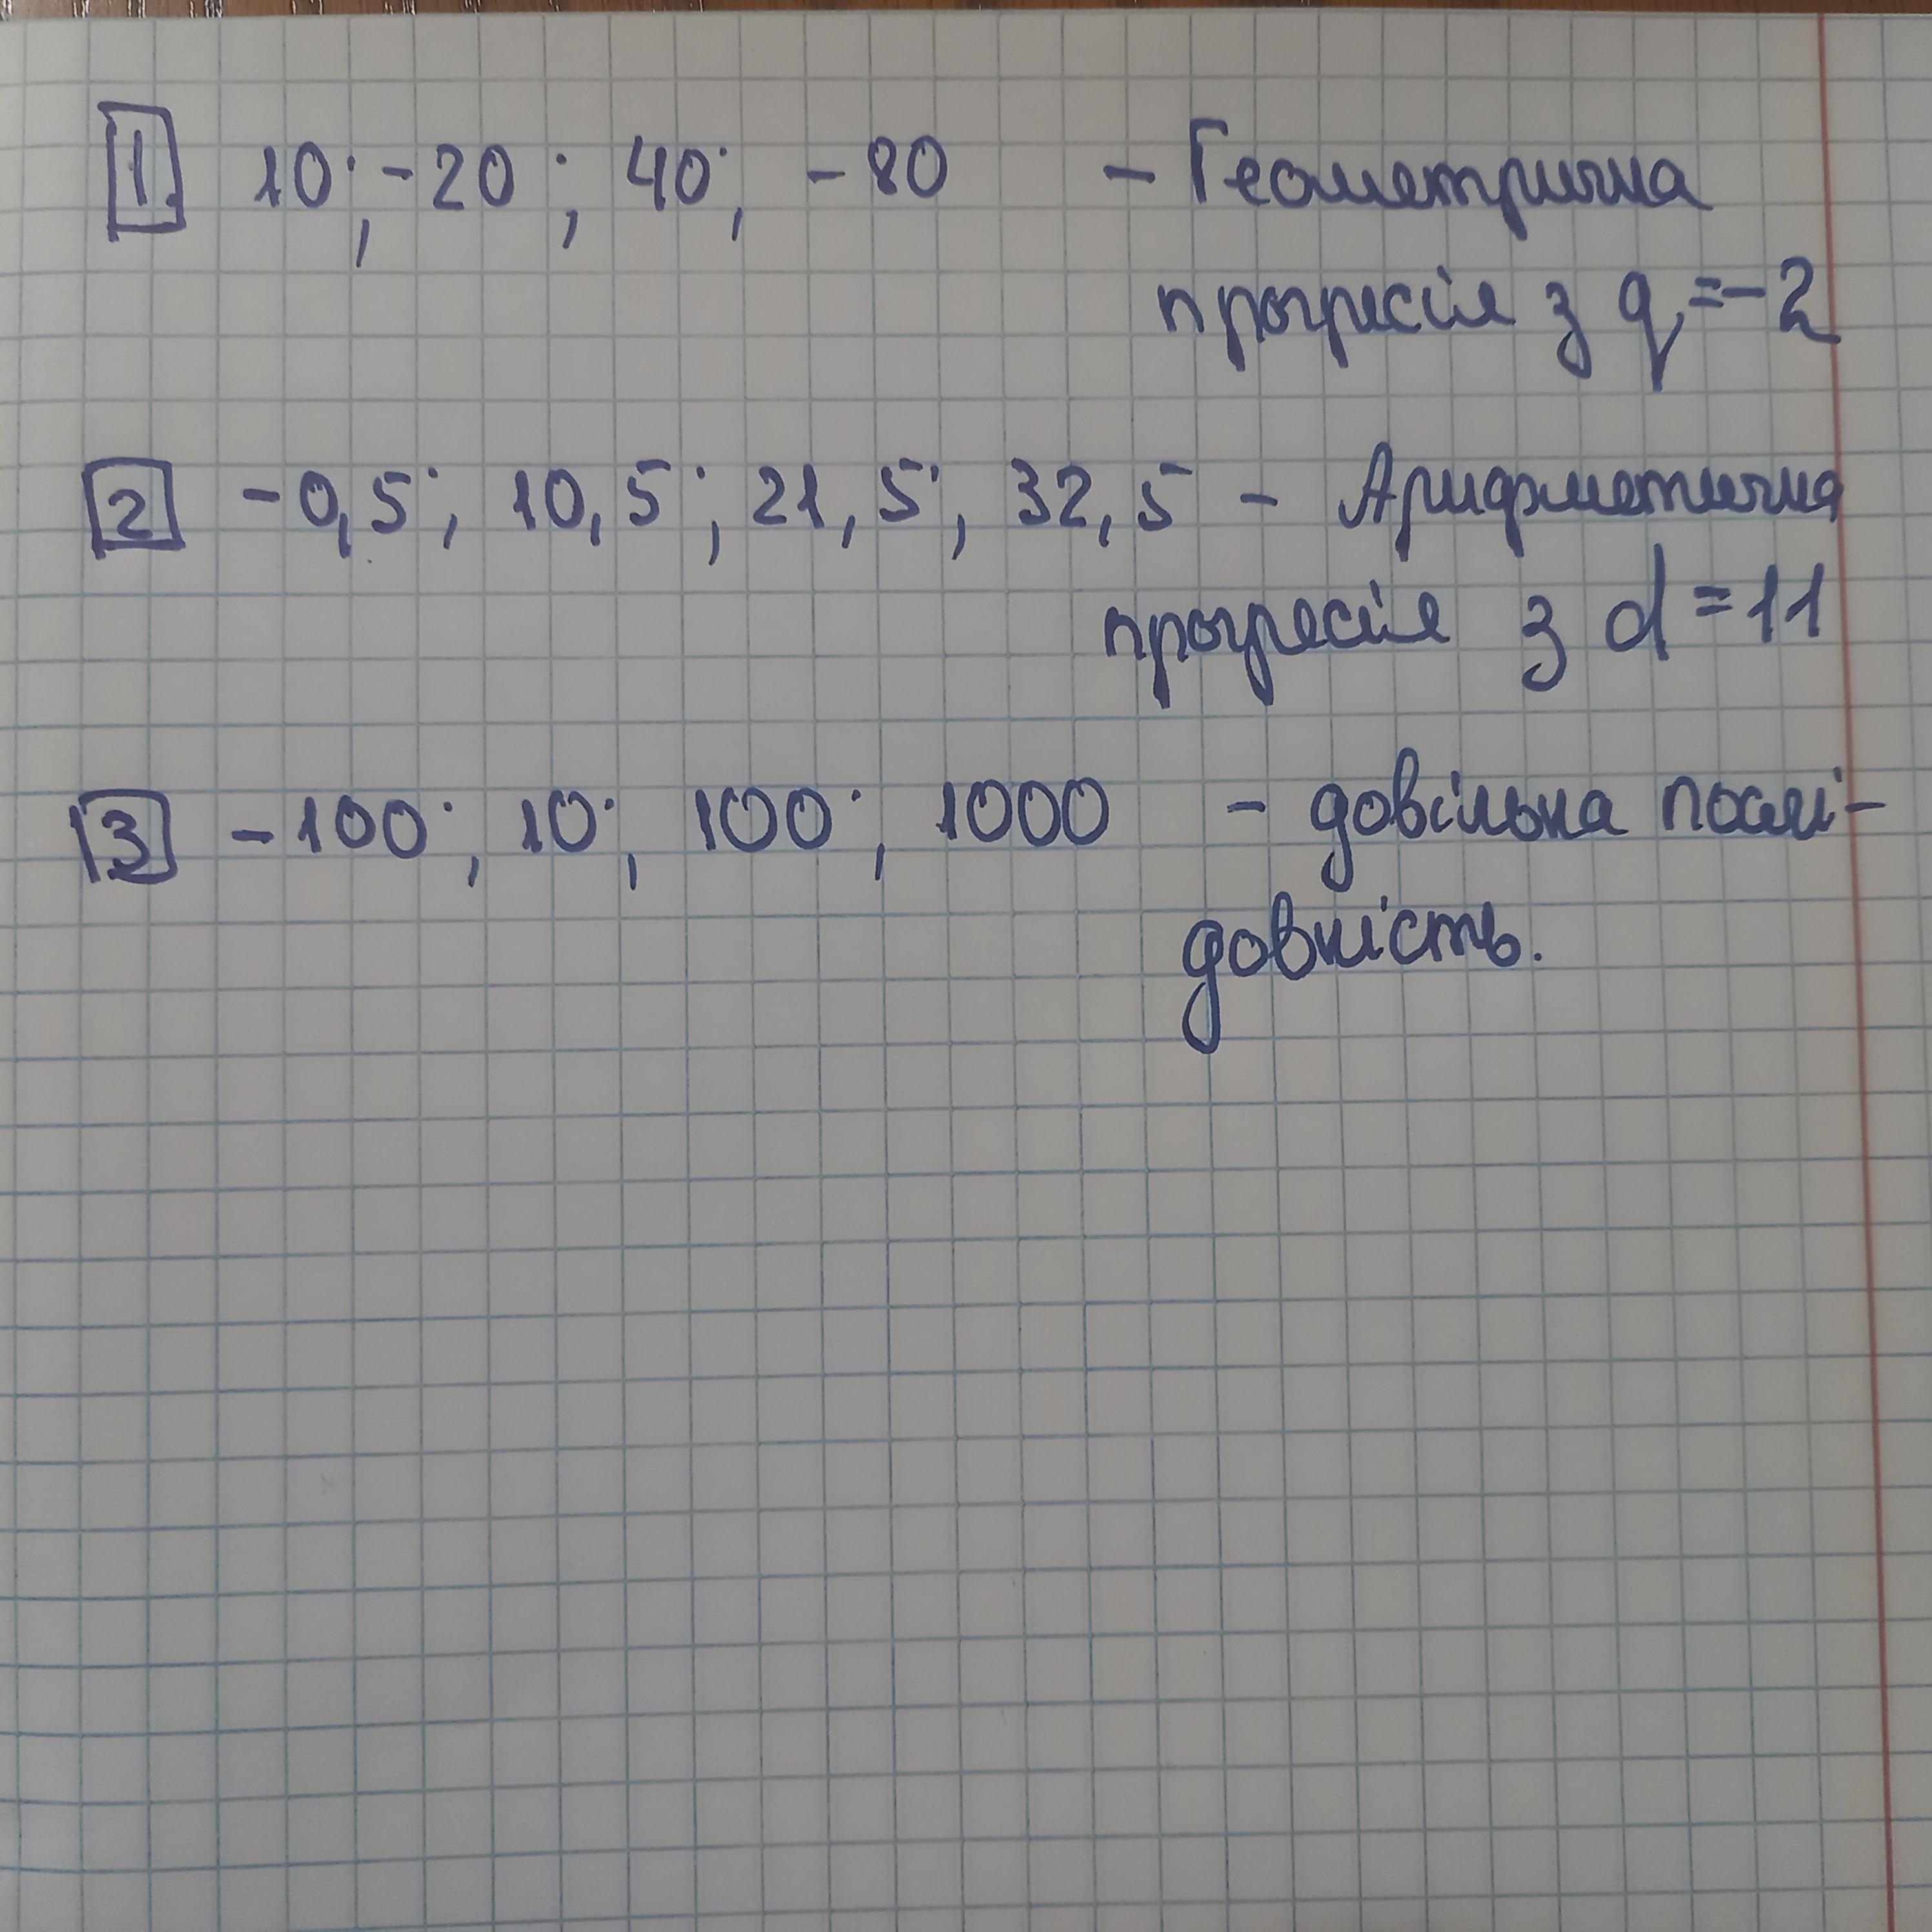 1 10; -20; 40; -80 - Геометрична
прогресія з q = -2
2 -0,5; 10,5; 21,5; 32,5 - Арифметична
прогресія з d = 11
3 -100; 10; 100; 1000 - довільна послі-
довність.